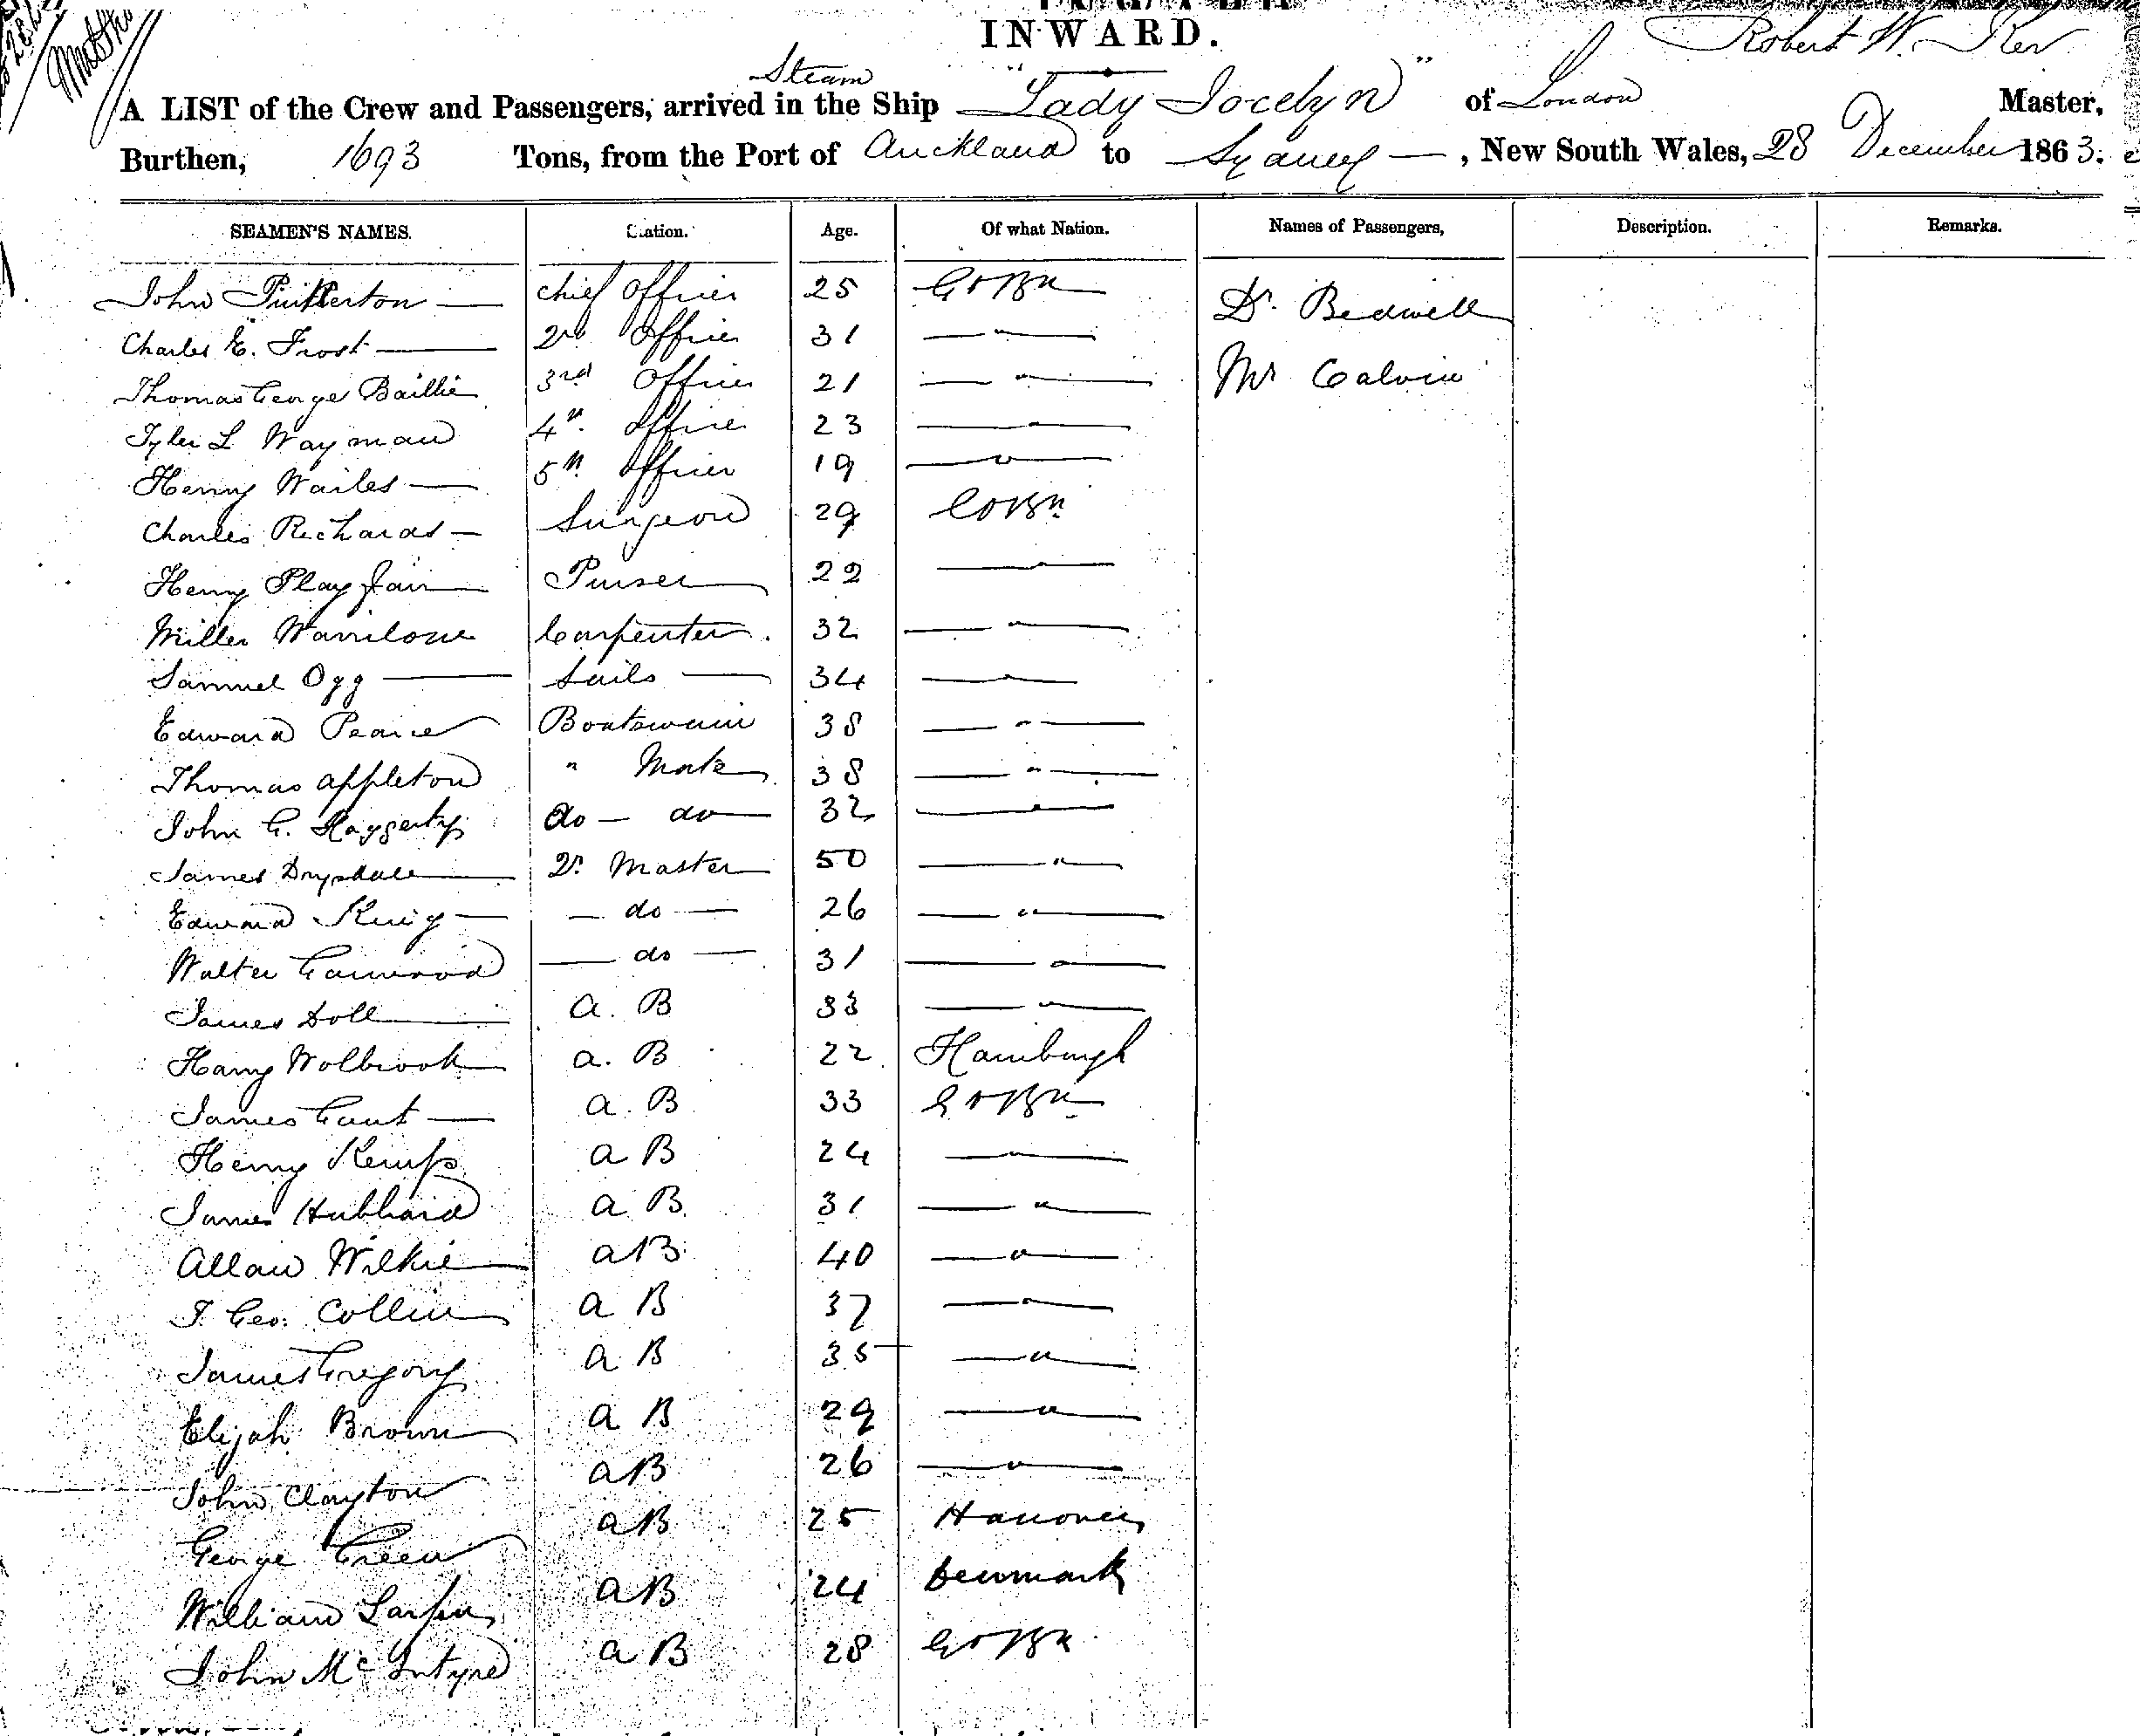 INWARD.
Robert W. Ker
Steam
A LIST of the Crew and Passengers, arrived in the Ship "Lady Jocelyn" of London Master,
Burthen, 1693 Tons, from the Port of Auckland to Sydney, New South Wales, 28 December 1863.
SEAMEN'S NAMES. Station. Age. Of what Nation. Names of Passengers, Description. Remarks.
John Pinkerton — chief officer 25 Gt Bn Dr. Bedwell
Charles E. Frost — 2nd officer 31 — " —
Thomas George Baillie 3rd officer 21 — " — Mr Calvin
Tyler L Wayman 4th officer 23 — " —
Henry Wailes — 5th officer 19 — " —
Charles Richards — Surgeon 29 Gt Bn
Henry Playfair Purser 22 — " —
Miller Carpenter. 32 — " —
Samuel Ogg — Sails — 34 — " —
Edward Pearce Boatswain 38 — " —
Thomas Appleton " Mate 38 — " —
John G. Haggerty do — do 32 — " —
James Drysdale Qr. Master 50 — " —
Edward King — — do — 26 — " —
Walter Garwood — do — 31 — " —
James Doll A. B 33 — " —
Harry Wolbrook A. B 22 Hamburgh
James Gaut — A. B 33 Gt Bn
Henry Kemp A B 24 — " —
James Hubbard A B. 31 — " —
Allan Wilkie AB 40 — " —
T. Geo. Collin A B 37 — " —
James Gregory A B 35 — " —
Elijah Brown A B 29 — " —
John Clayton AB 26 — " —
George Green AB 25 Hanover
William Larsen AB 24 Denmark
John McIntyre AB 28 Gt Bn